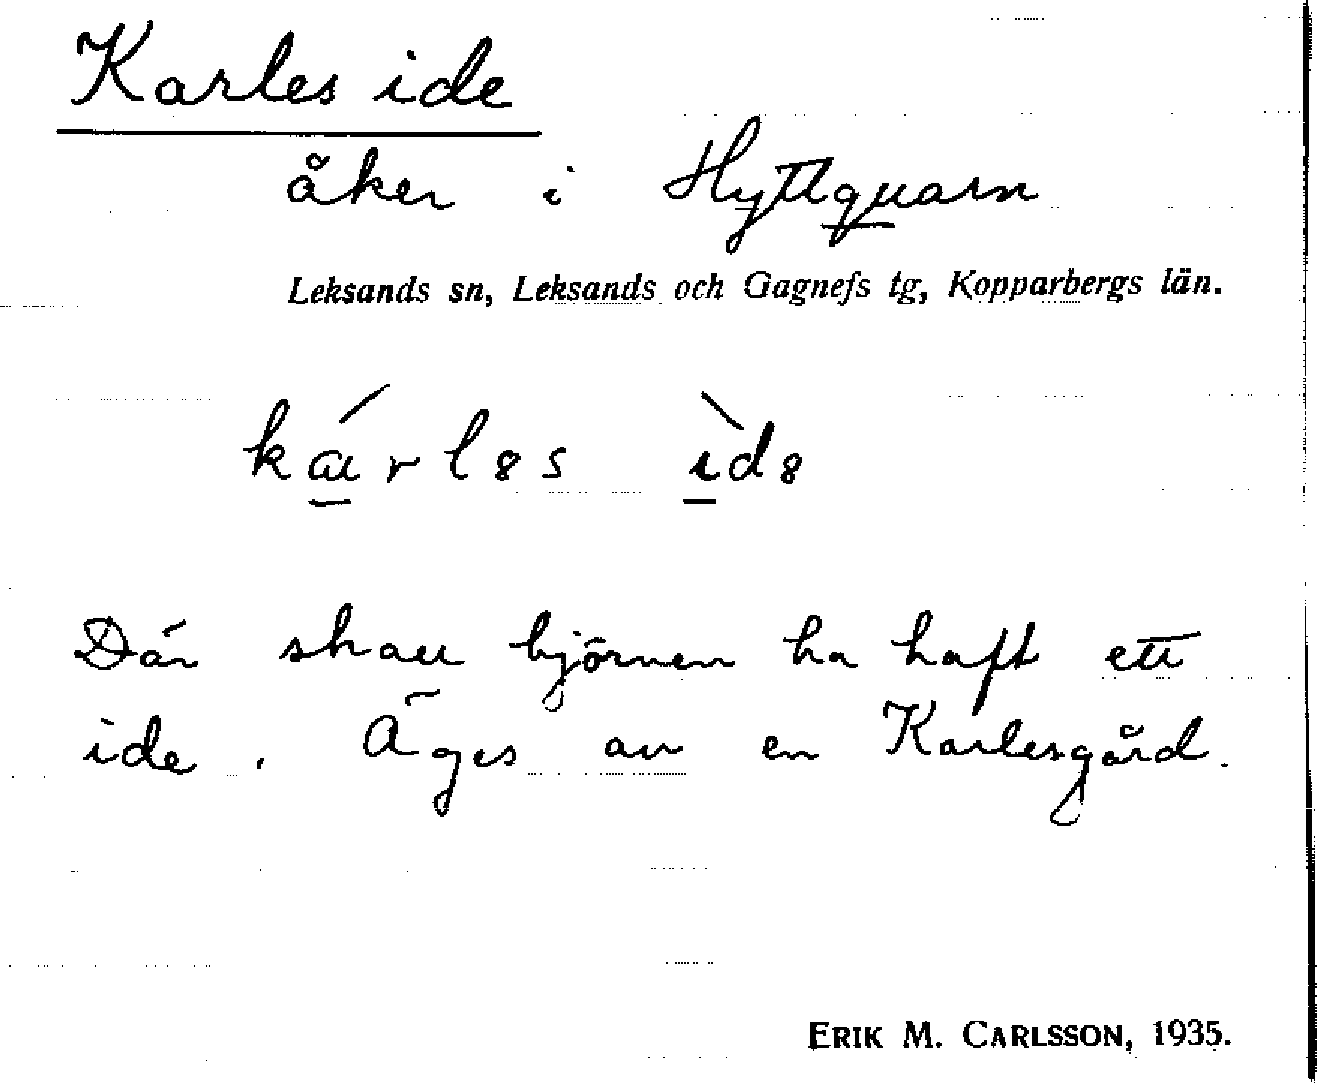 Karles ide
åker i Hyttquarn
Leksands sn, Leksands och Gagnefs tg, Kopparbergs län.
kárləs ìdə
Där skall björnen ha haft ett
ide. Äges av en Karlesgård.
ERIK M. CARLSSON, 1935.